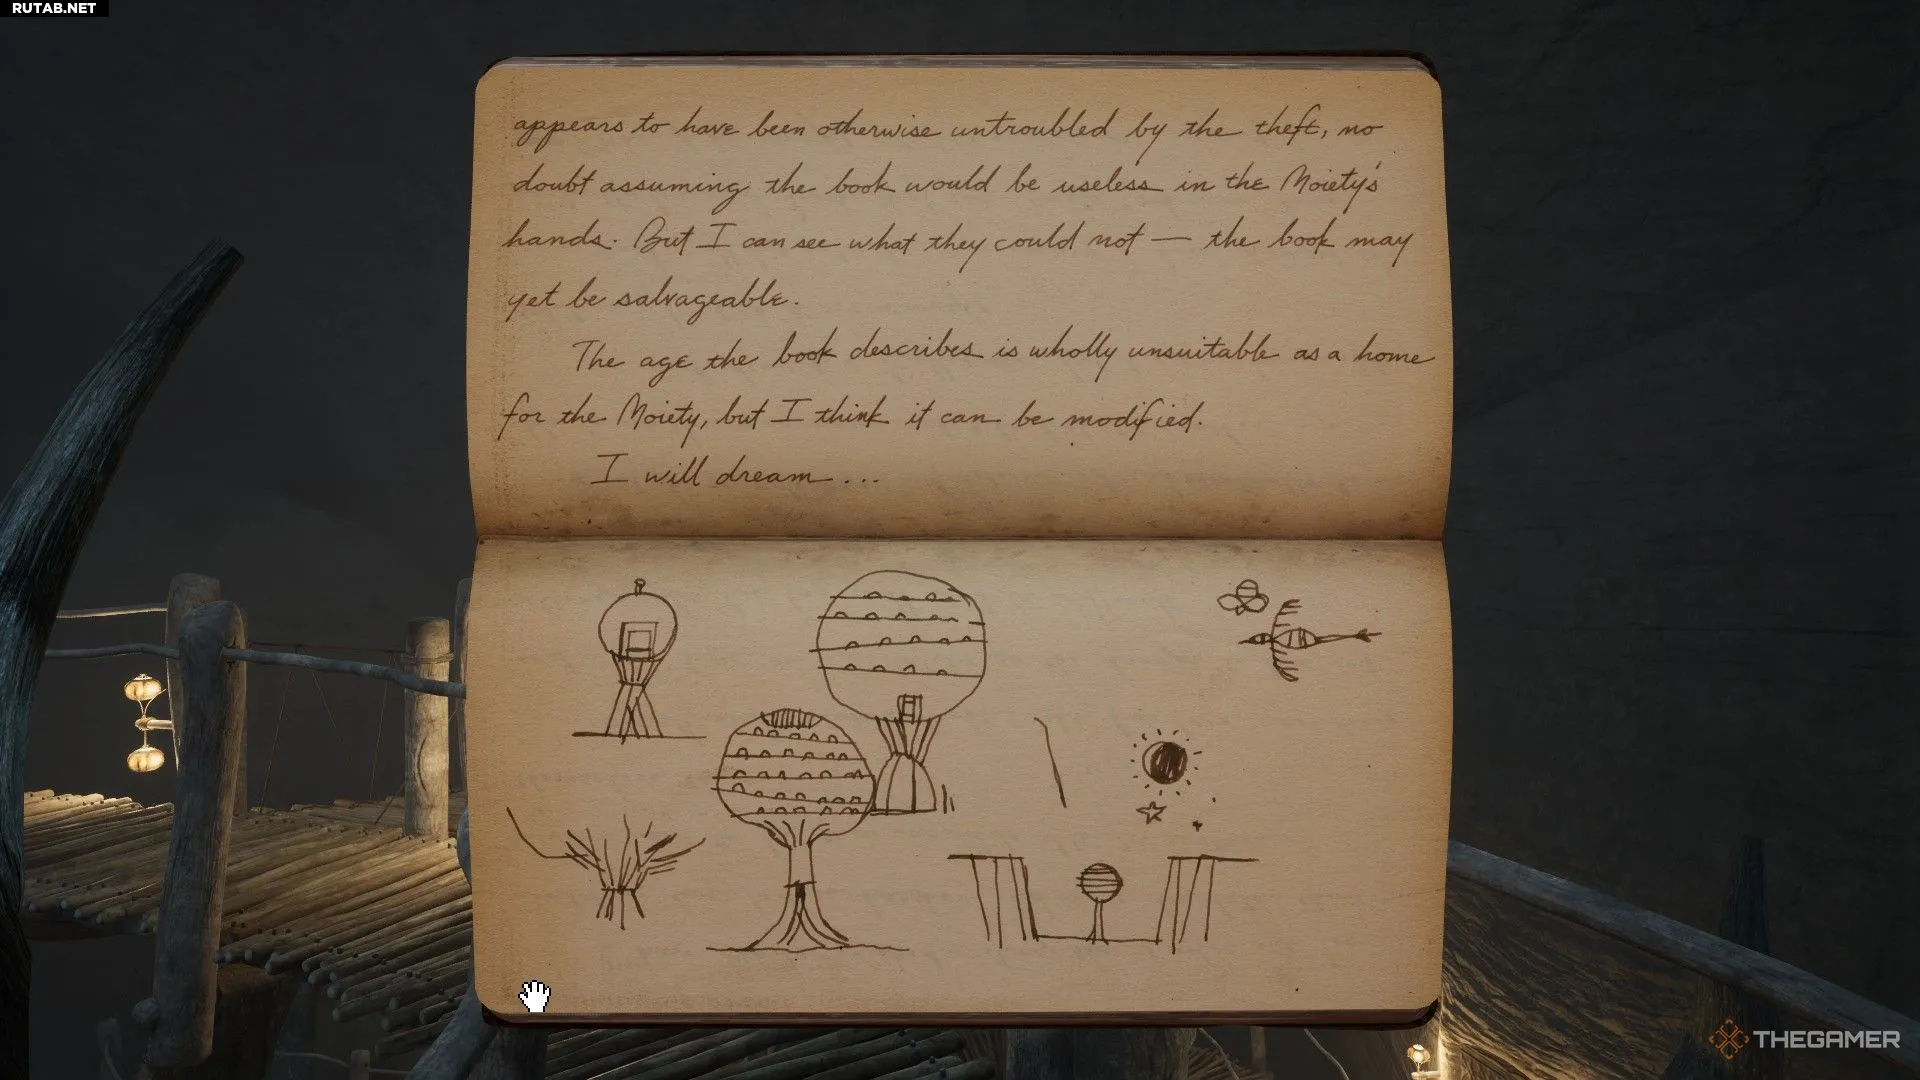 RUTAB.NET
appears to have been otherwise untroubled by the theft, no
doubt assuming the book would be useless in the Moiety's
hands. But I can see what they could not — the book may
yet be salvageable.
The age the book describes is wholly unsuitable as a home
for the Moiety, but I think it can be modified.
I will dream...
THEGAMER